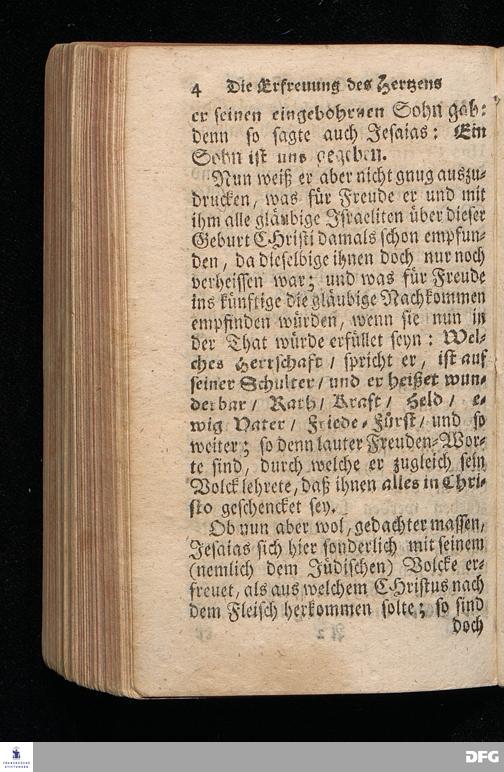 4 Die Erfreuung des Hertzens
er seinen eingebohrnen Sohn gab:
denn so sagte auch Jesaias: Ein
Sohn ist uns gegeben.
Nun weiß er aber nicht gnug auszu-
drucken, was für Freude er und mit
ihm alle gläubige Israeliten über dieser
Geburt CHristi damals schon empfun-
den, da dieselbige ihnen doch nur noch
verheissen war; und was für Freude
ins künftige die gläubige Nachkommen
empfinden würden, wenn sie nun in
der That würde erfüllet seyn: Wel-
ches Herrschaft / spricht er, ist auf
seiner Schulter / und er heißet wun-
derbar / Rath / Kraft / Held / e-
wig Vater / Friede-Fürst / und so
weiter; so denn lauter Freuden-Wor-
te sind, durch welche er zugleich sein
Volck lehrete, daß ihnen alles in Chri-
sto geschencket sey.
Ob nun aber wol, gedachter massen,
Jesaias sich hier sonderlich mit seinem
(nemlich dem Jüdischen) Volcke er-
freuet, als aus welchem CHristus nach
dem Fleisch herkommen solte; so sind
doch
FRANCKESCHE
STIFTUNGEN
DFG